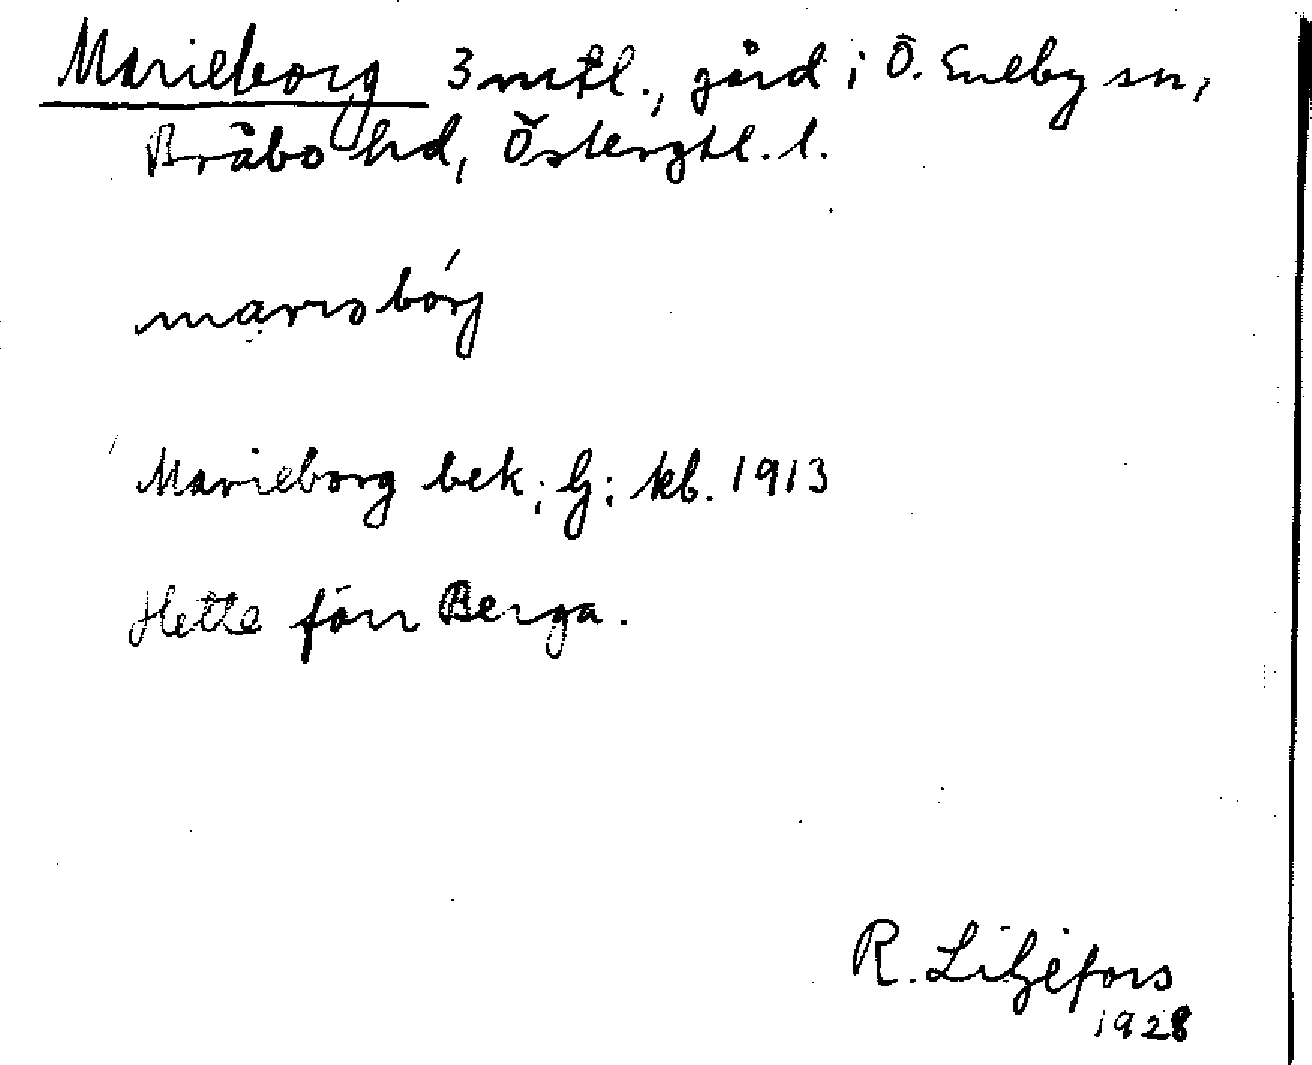 Marieborg 3 mtl., gård i Ö. Eneby sn,
Bråbo hd, Östergtl. l.
Marieborg bek; Lj; kb. 1913
Hette förr Berga.
R. Liljefors
1928